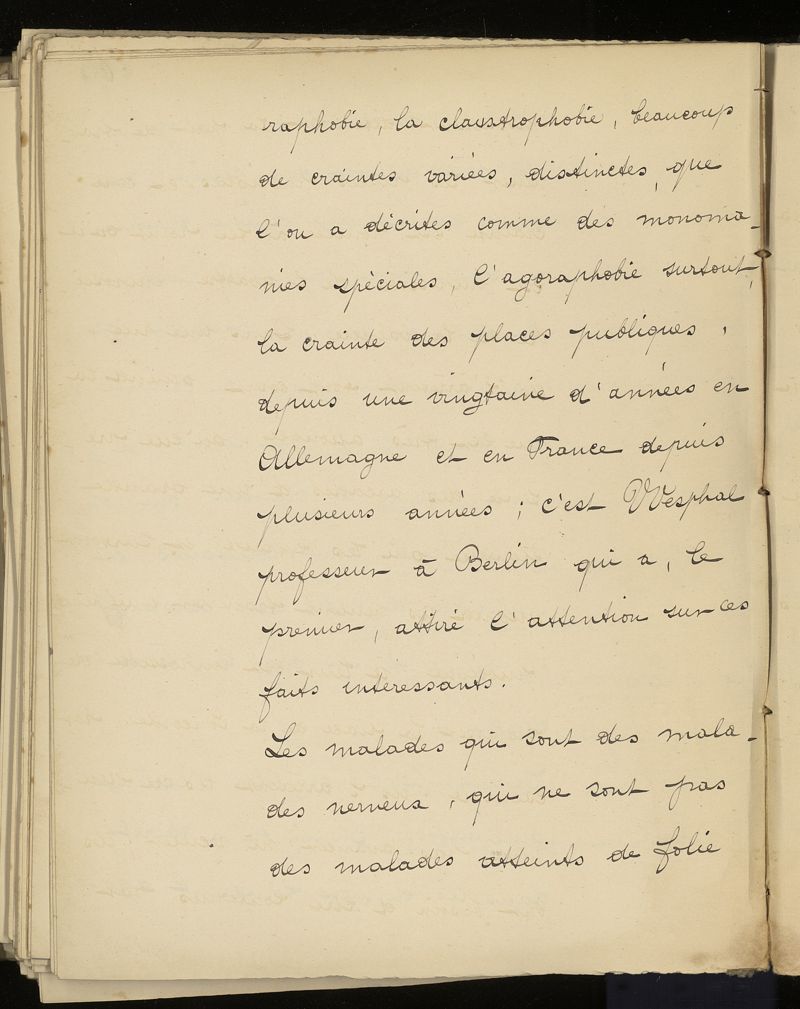 raphobie, la claustrophobie, beaucoup
de craintes variées, distinctes, que
l'on a décrites comme des monoma-
nies spéciales, l'agoraphobie surtout,
la crainte des places publiques,
depuis une vingtaine d'années en
Allemagne et en France depuis
plusieurs années ; c'est Wesphal
professeur à Berlin qui a, le
premier, attiré l'attention sur ces
faits intéressants.
Les malades qui sont des mala-
des nerveux, qui ne sont pas
des malades atteints de folie